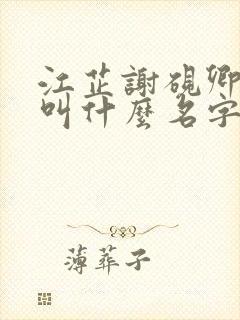 江芷謝硯卿
叫什麼名字
薄葬子